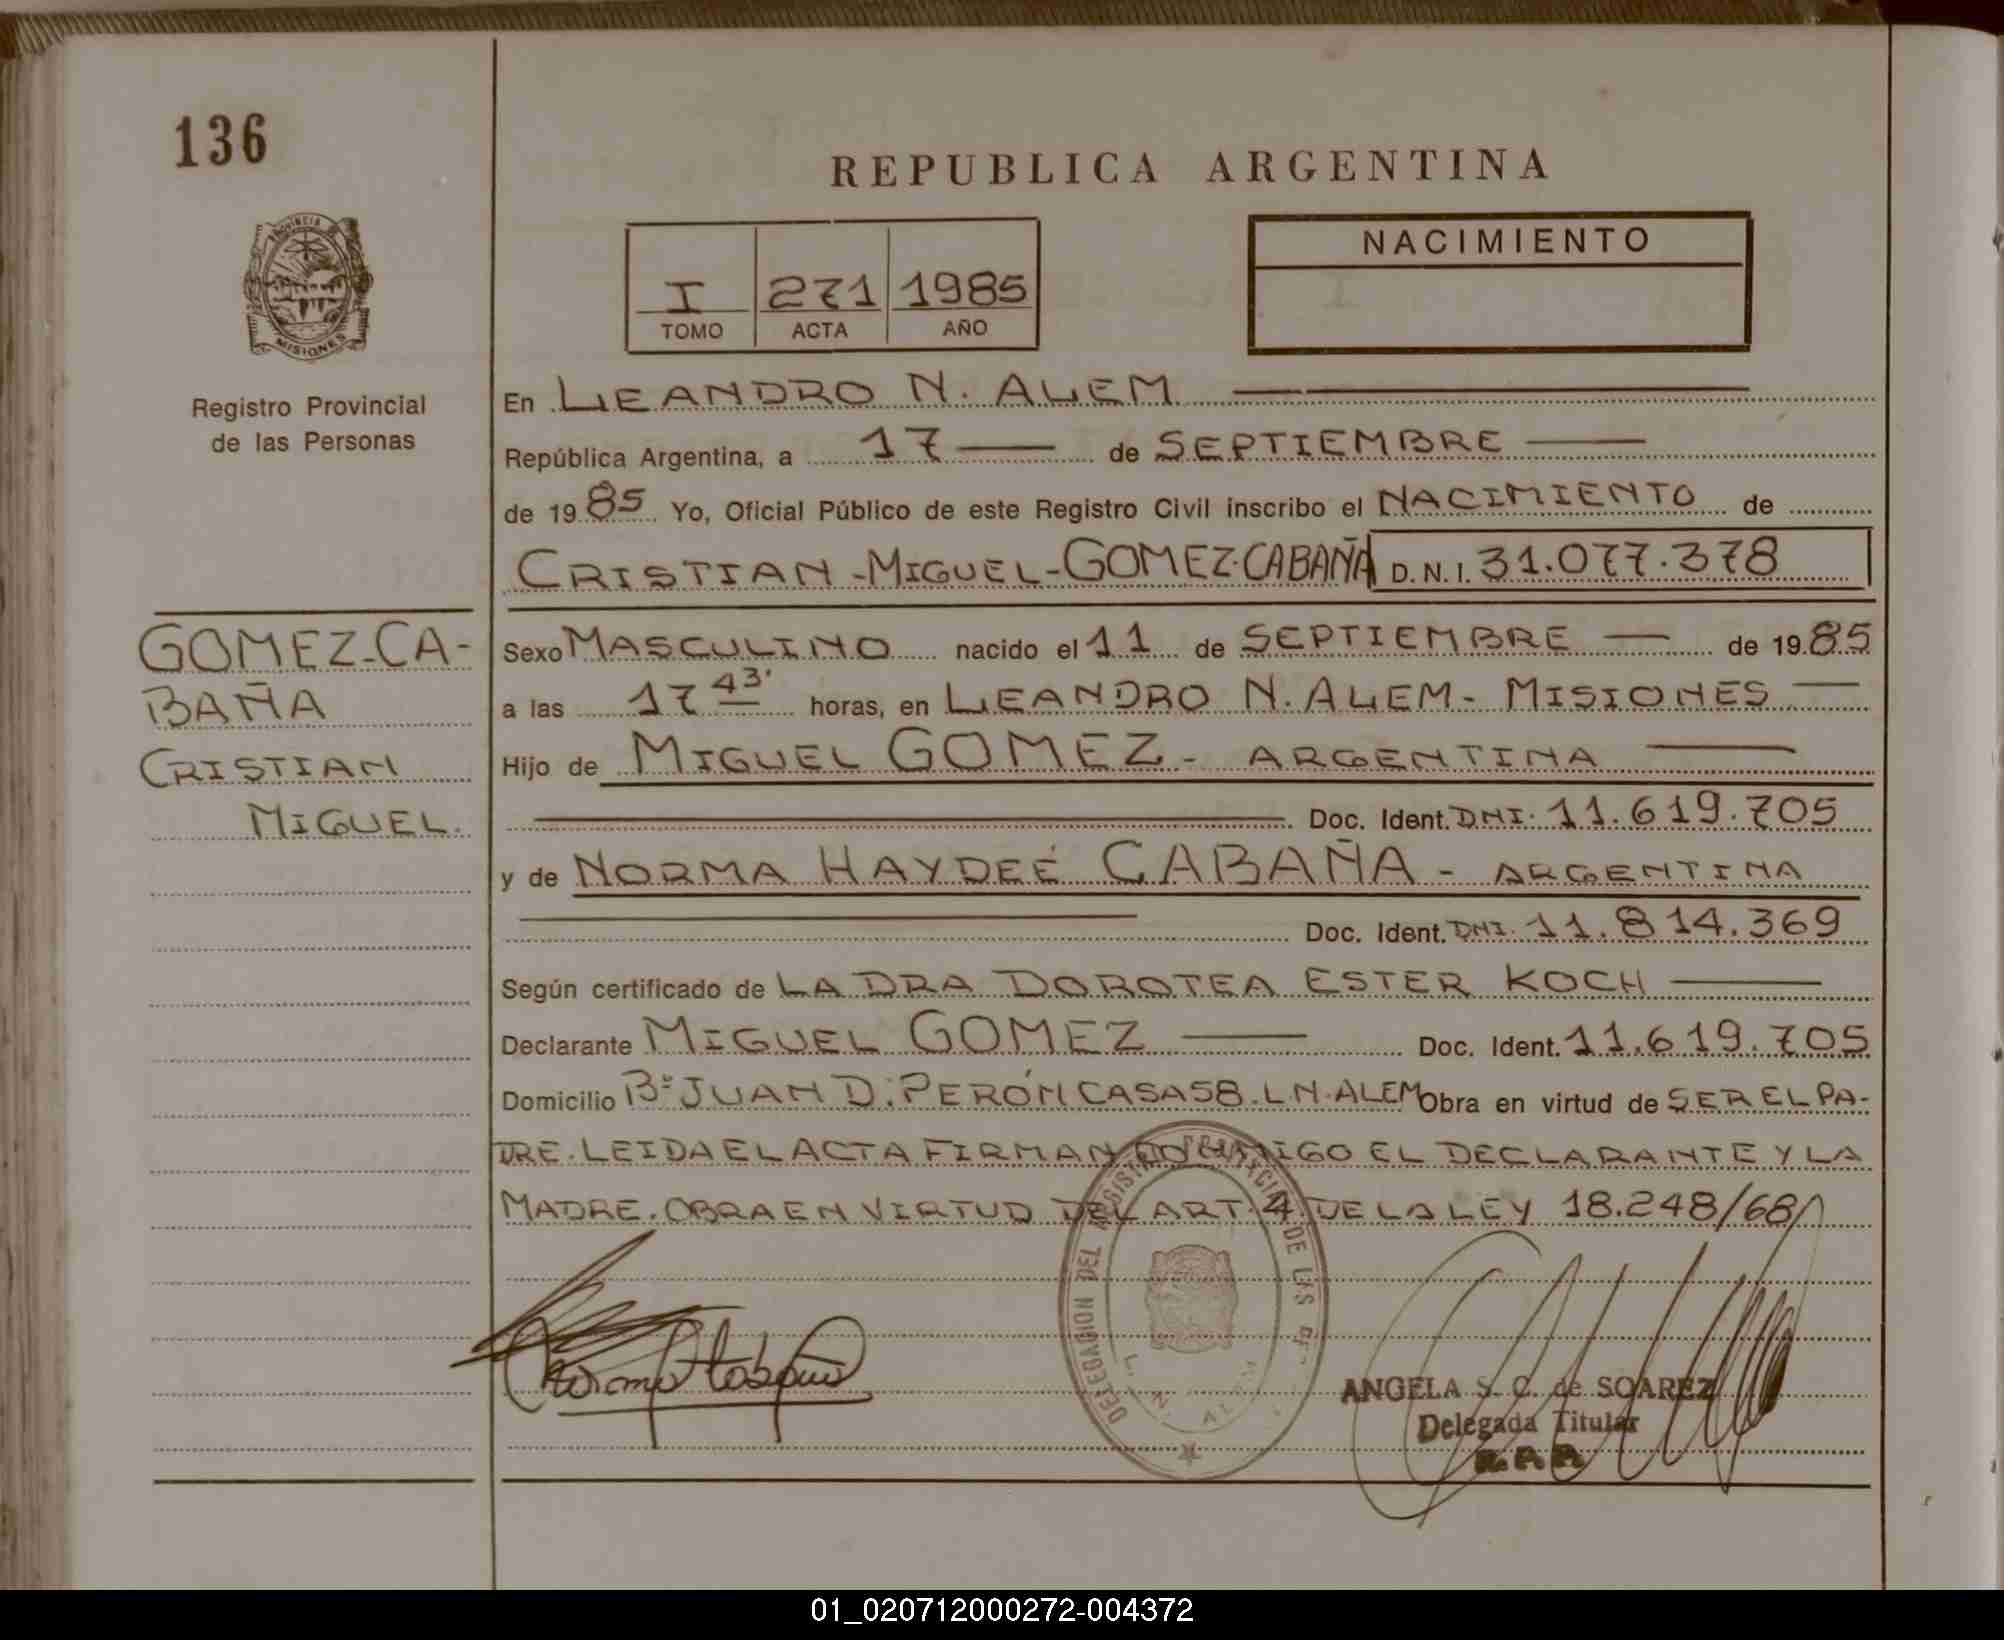 136
REPUBLICA ARGENTINA
PROVINCIA DE
MISIONES
Registro Provincial
de las Personas
I 271 1985
TOMO ACTA AÑO
NACIMIENTO
En LEANDRO N. ALEM
República Argentina, a 17 de SEPTIEMBRE
de 1985 Yo, Oficial Público de este Registro Civil inscribo el NACIMIENTO de
CRISTIAN-MIGUEL-GOMEZ-CABAÑA D.N.I. 31.077.378
GOMEZ-CA-
BAÑA
CRISTIAN
MIGUEL.
Sexo MASCULINO nacido el 11 de SEPTIEMBRE de 1985
a las 17 43' horas, en LEANDRO N. ALEM - MISIONES
Hijo de MIGUEL GOMEZ - ARGENTINA
Doc. Ident. DNI. 11.619.705
y de NORMA HAYDEÉ CABAÑA - ARGENTINA
Doc. Ident. DNI. 11.814.369
Según certificado de LA DRA DOROTEA ESTER KOCH
Declarante MIGUEL GOMEZ Doc. Ident. 11.619.705
Domicilio Bº JUAN D. PERÓN CASA 58. L.N. ALEM Obra en virtud de SER EL PA-
DRE. LEIDA EL ACTA FIRMAN CONMIGO EL DECLARANTE Y LA
MADRE. OBRA EN VIRTUD DEL ART. 4 DE LA LEY 18.248/68
DELEGACION DEL REGISTRO PROVINCIAL DE LAS
L. N. ALEM
ANGELA S. C. de SOAREZ
Delegada Titular
R.P.P.
01_020712000272-004372